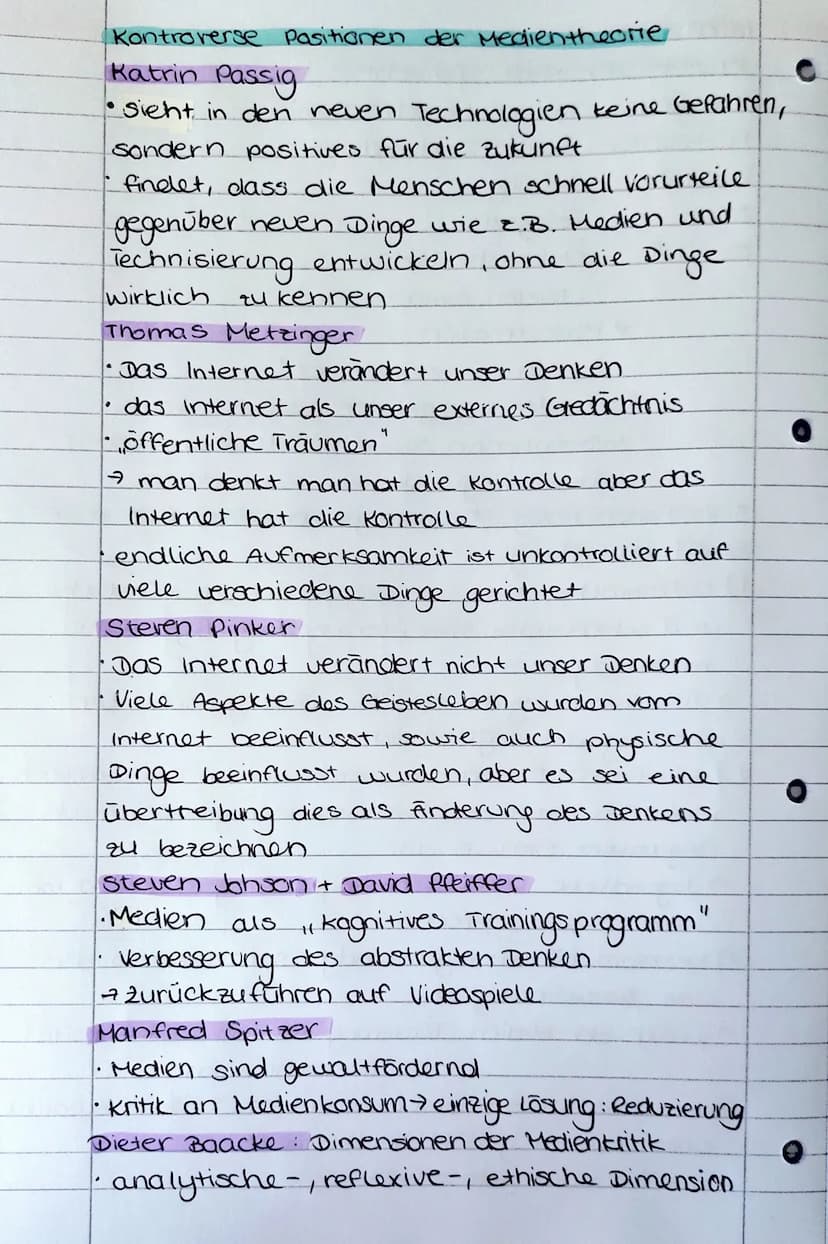 Kontroverse Positionen der Medientheorie
Katrin Passig
• sieht in den neuen Technologien keine Gefahren,
sondern positives für die Zukunft
• findet, dass die Menschen schnell Vorurteile
gegenüber neuen Dinge wie z.B. Medien und
Technisierung entwickeln, ohne die Dinge
wirklich zu kennen
Thomas Metzinger
• Das Internet verändert unser Denken
• das Internet als unser externes Gedächtnis
• „öffentliche Träumen"
→ man denkt man hat die Kontrolle aber das
Internet hat die Kontrolle
• endliche Aufmerksamkeit ist unkontrolliert auf
viele verschiedene Dinge gerichtet
Steven Pinker
• Das Internet verändert nicht unser Denken
• Viele Aspekte des Geistesleben wurden vom
Internet beeinflusst, sowie auch physische
Dinge beeinflusst wurden, aber es sei eine
Übertreibung dies als Änderung des Denkens
zu bezeichnen
Steven Johson + David Pfeiffer
• Medien als „kognitives Trainingsprogramm"
• Verbesserung des abstrakten Denken
→ zurückzuführen auf Videospiele
Manfred Spitzer
• Medien sind gewaltfördernd
• Kritik an Medienkonsum → einzige Lösung: Reduzierung
Dieter Baacke: Dimensionen der Medienkritik
• analytische-, reflexive-, ethische Dimension